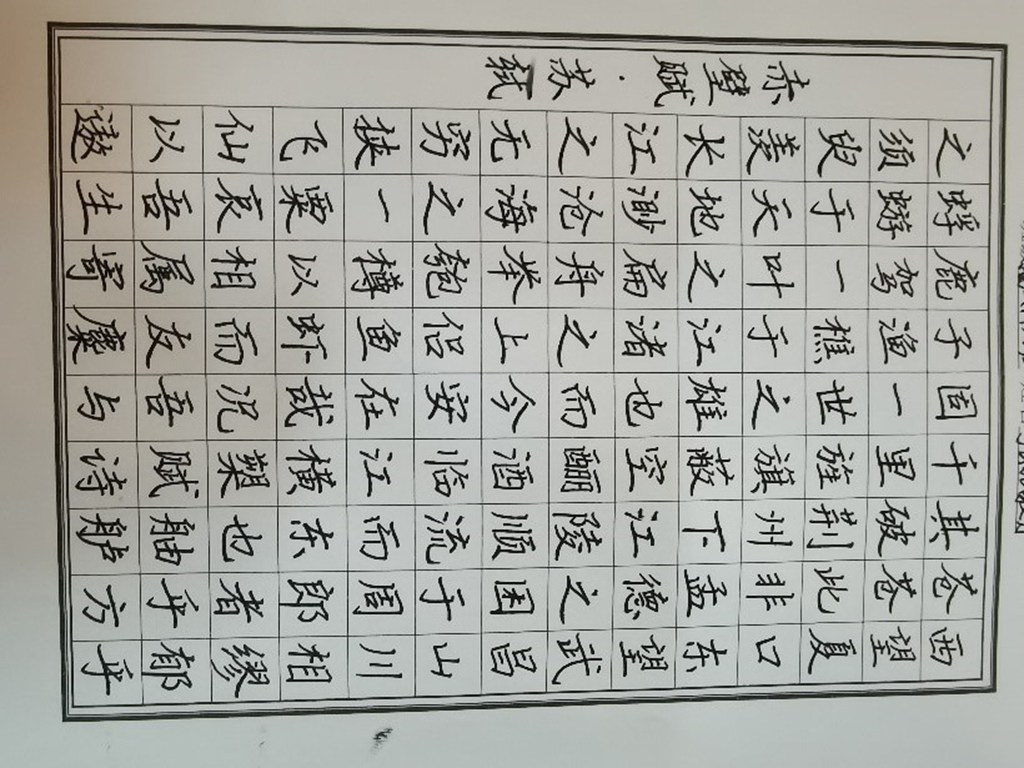 西望夏口东望武昌山川相缪郁乎
苍苍此非孟德之困于周郎者乎方
其破荆州下江陵顺流而东也舳舻
千里旌旗蔽空酾酒临江横槊赋诗
固一世之雄也而今安在哉况吾与
子渔樵于江渚之上侣鱼虾而友麋
鹿驾一叶之扁舟举匏樽以相属寄
蜉蝣于天地渺沧海之一粟哀吾生
之须臾羡长江之无穷挟飞仙以遨
赤壁赋·苏轼